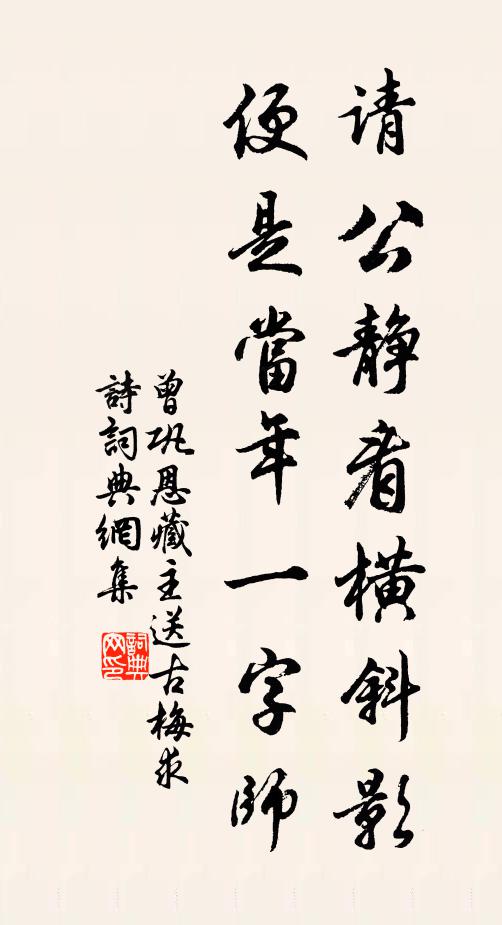 请公静看橫斜影
便是當年一字師
曾巩恩藏主送古梅求
詩詞典網集
詞典